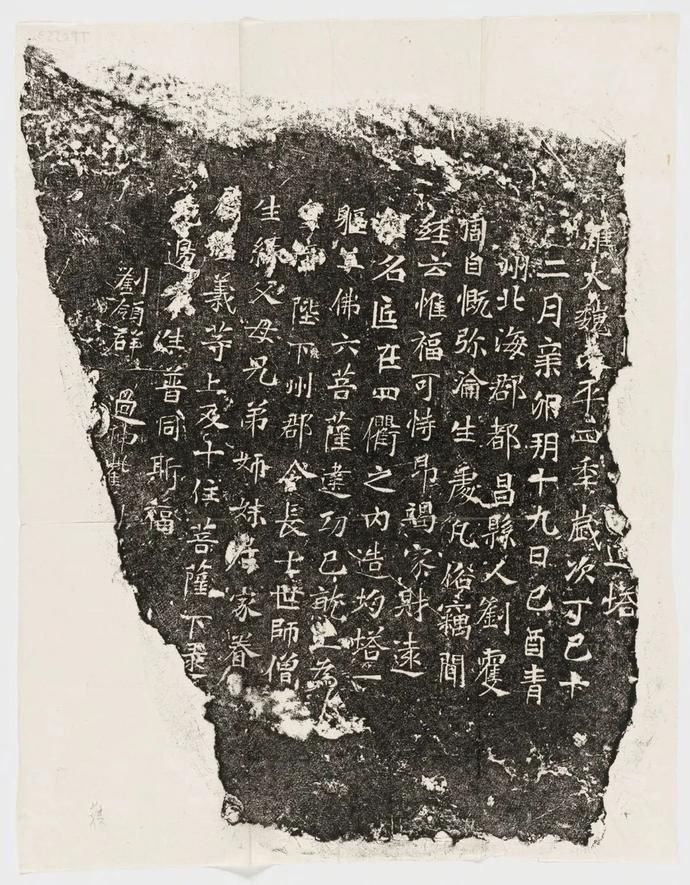 造塔
維大魏平四年歲次丁巳十
二月辛卯朔十九日己酉青
州北海郡都昌縣人劉雙
周自慨弥淪生處凡俗竊聞
經云惟福可恃即竭家財遠
名匠在四衢之内造塔一
軀二佛六菩薩建功已就上為
陛下州郡令長七世師僧
生緣父母兄弟姉妹居家眷
義等上及十住菩薩下
邊生普同斯福
劉領群
過